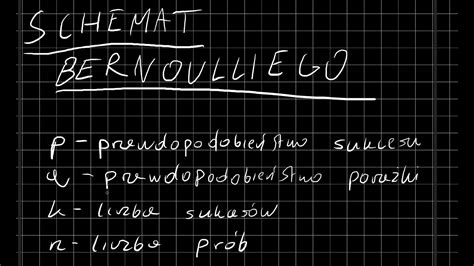 SCHEMAT
BERNOULLIEGO
p - prawdopodobieństwo sukcesu
q - prawdopodobieństwo porażki
k - liczba sukcesów
n - liczba prób